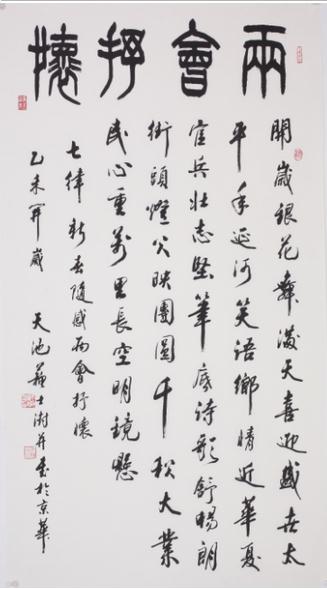 兩會抒懷
開歲銀花舞滿天喜迎盛世太
平年延河笑語鄉情近華夏
官兵壯志堅筆底詩歌舒暢朗
街頭燈火映團圓千秋大業
民心重萬里長空明鏡懸
七律新春隨感兩會抒懷
乙未開歲 天池蘇士澍并書於京華